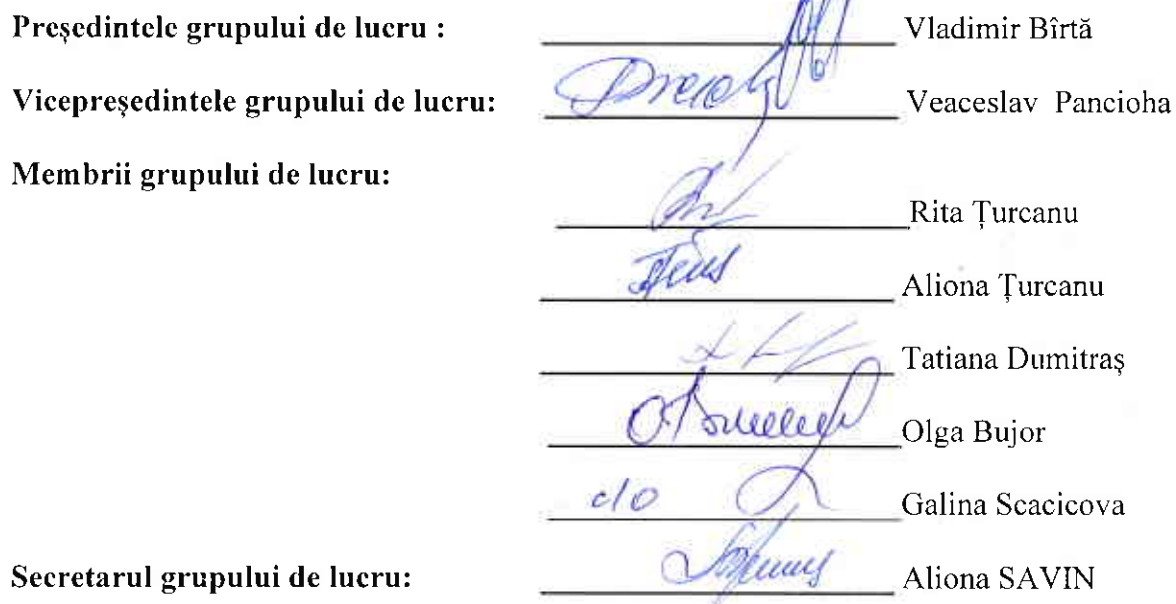 Președintele grupului de lucru : Vladimir Bîrtă
Vicepreședintele grupului de lucru: Veaceslav Pancioha
Membrii grupului de lucru:
Rita Țurcanu
Aliona Țurcanu
Tatiana Dumitraș
Olga Bujor
c/o Galina Scacicova
Secretarul grupului de lucru: Aliona SAVIN